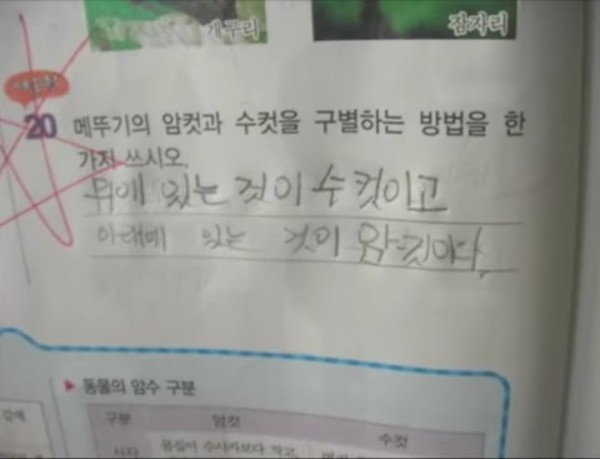 개구리 잠자리
20 메뚜기의 암컷과 수컷을 구별하는 방법을 한
가지 쓰시오.
위에 있는 것이 수컷이고
아래에 있는 것이 암컷이다.
▶ 동물의 암수 구분
구분 암컷 수컷
사자 몸집이 수사자보다 작고,